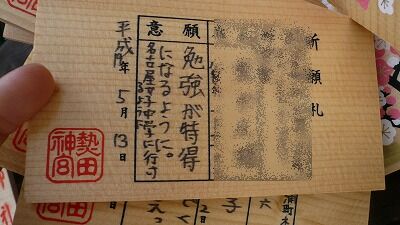 祈願札
願意
勉強が特得
になるように。
名古屋女子中学に行け
るように
平成 年5月13日
熱田
神宮